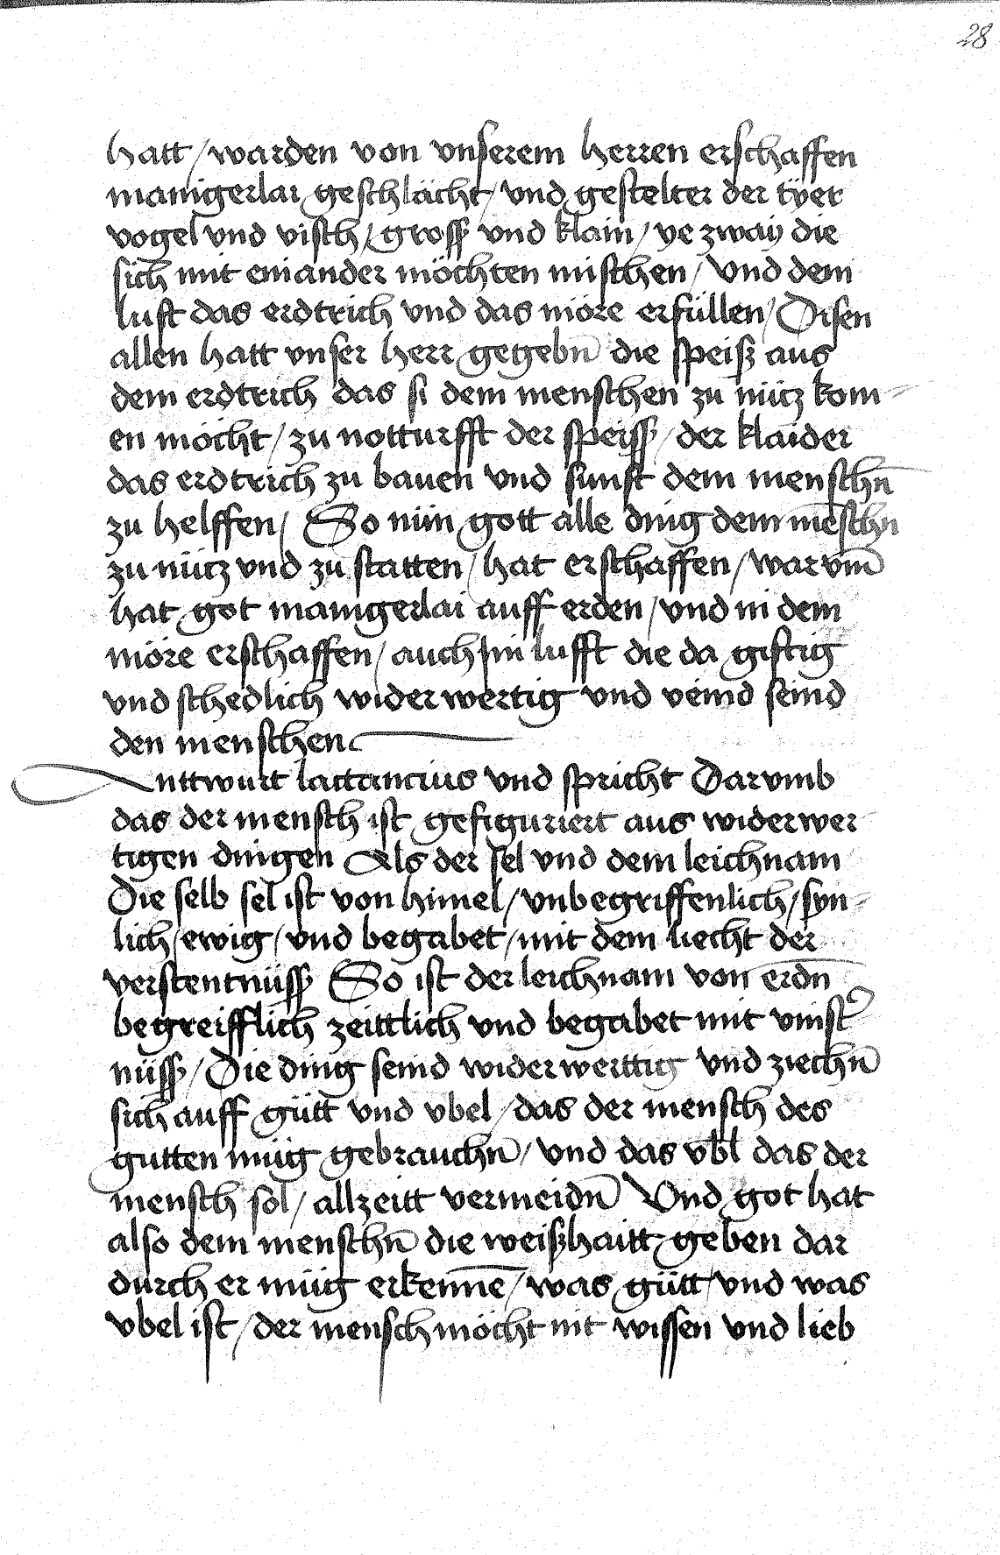 28
hatt / warden von vnserem herren erschaffen
manigerlai geschlächt / vnd gestelter der tÿer
vogel vnd visch / gross vnd klain / ye zwaij die
sich mit einander möchten mischen / vnd dem
luft das erdtrich vnd das möre erfüllen / Disen
allen hatt vnser herr gegebn̄ die speiß aus
dem erdtrich das si dem menschen zu nütz kom-
en möcht / zu notturfft der speiss / der klaider
das erdtrich zu bauen vnd sunst dem menschn̄
zu helffen / So nün gott alle ding dem mēschn
zu nütz vnd zu statten / hat erschaffen / warvm̄
hat got manigerlai auff erden / vnd in dem
möre erschaffen / auch im lufft die da giftig
vnd schedlich widerwertig vnd veind seind
den menschen
Anttwurt lactancius vnd spricht Darvmb
das der mensch ist gefiguriert aus widerwer
tigen dingen Als der sel vnd dem leichnam
Die selb sel ist von himel / vnbegriffenlich / syn-
lich / ewig / vnd begabet / mit dem liecht der
verstentnüss So ist der leichnam von erdn̄
begreifflich zeittlich vnd begabet mit vinst᾽
nüss / Die ding seind widerwerttig vnd ziechn̄
sich auff gütt vnd vbel / das der mensch des
gutten müg gebrauchn̄ / vnd das vbl das der
mensch sol / allzeitt vermeidn̄ Vnd got hat
also dem menschn̄ die weißhaitt geben dar
durch er müg erkenne̅ / was gütt vnd was
vbel ist / der mensch möcht nit wissen vnd lieb